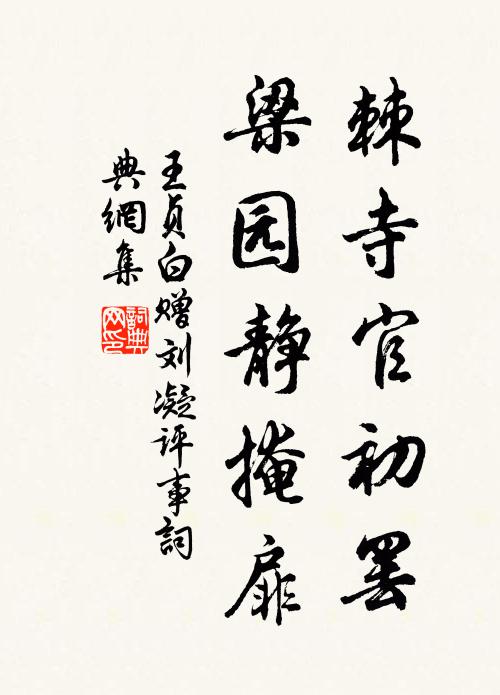 棘寺官初罢
梁园静掩扉
王贞白赠刘凝评事詞
典網集
詞典网印